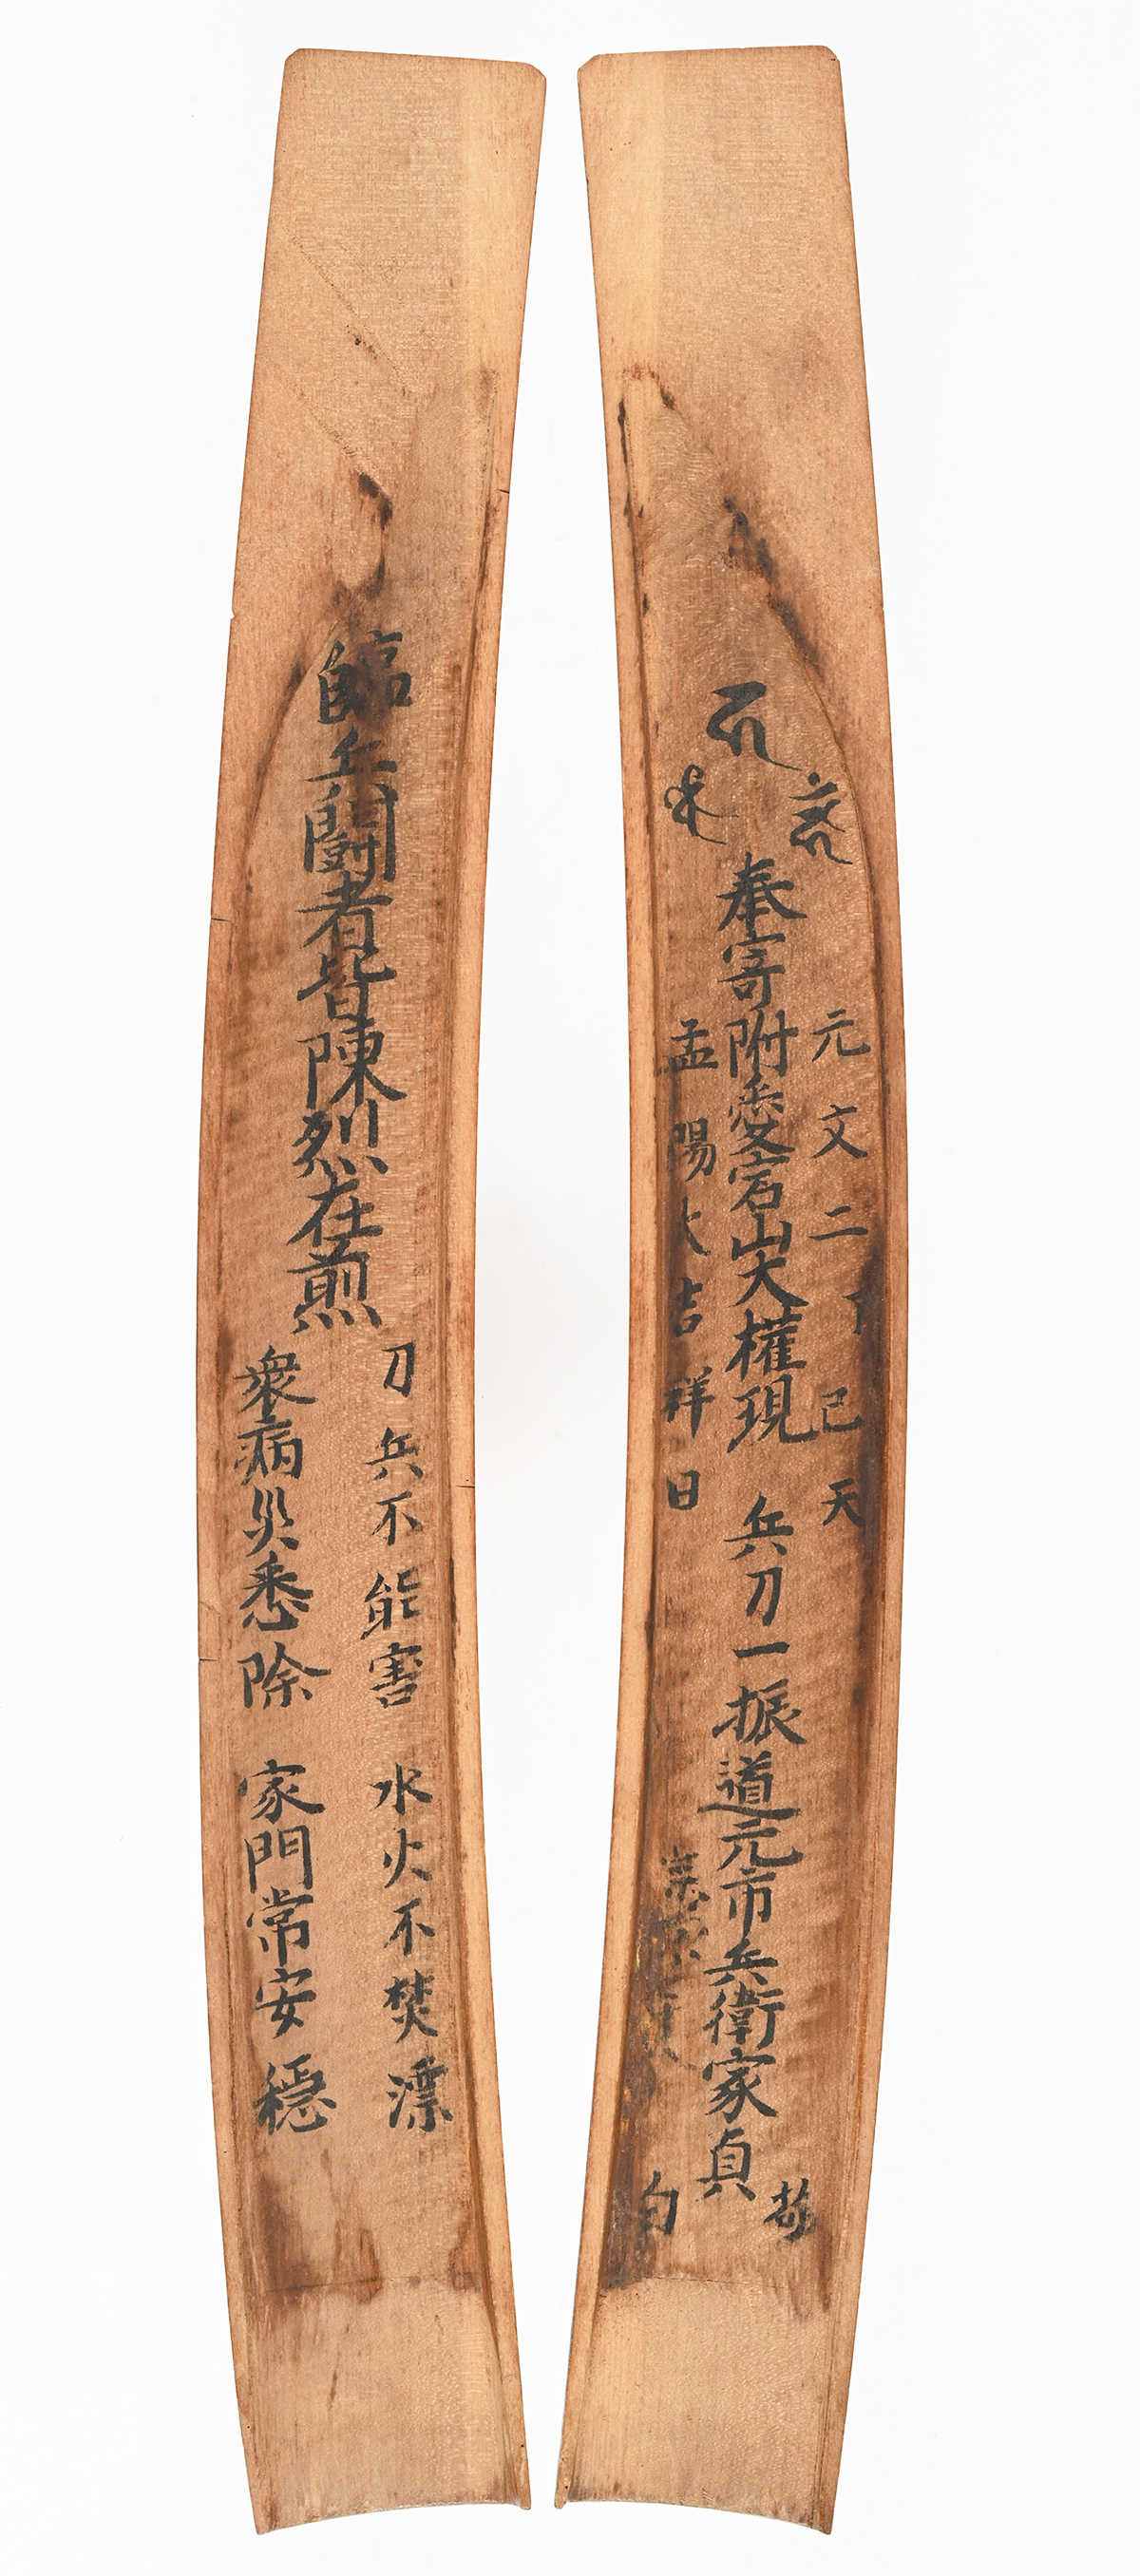 元文二丁巳天
奉寄附愛宕山大權現 兵刀一振道元市兵衛家貞
敬
孟陽大吉祥日
白
臨兵闘者皆陳烈在煎
刀兵不能害 水火不焚漂
衆病災悉除 家門常安穏